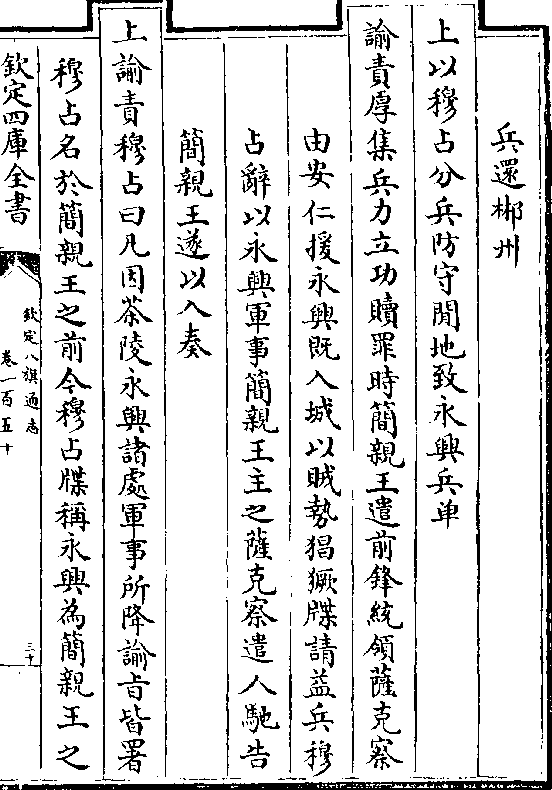 兵還郴州
上以穆占分兵防守閒地致永興兵单
諭責厚集兵力立功贖罪時簡親王遣前鋒統領薩克察
由安仁援永興既入城以賊勢猖獗牒請益兵穆
占辭以永興軍事簡親王主之薩克察遣人馳告
簡親王遂以入奏
上諭責穆占曰凡因茶陵永興諸處軍事所降諭㫖皆署
穆占名於簡親王之前今穆占牒稱永興為簡親王之
欽定四庫全書
欽定八旗通志
卷一百五十
三十